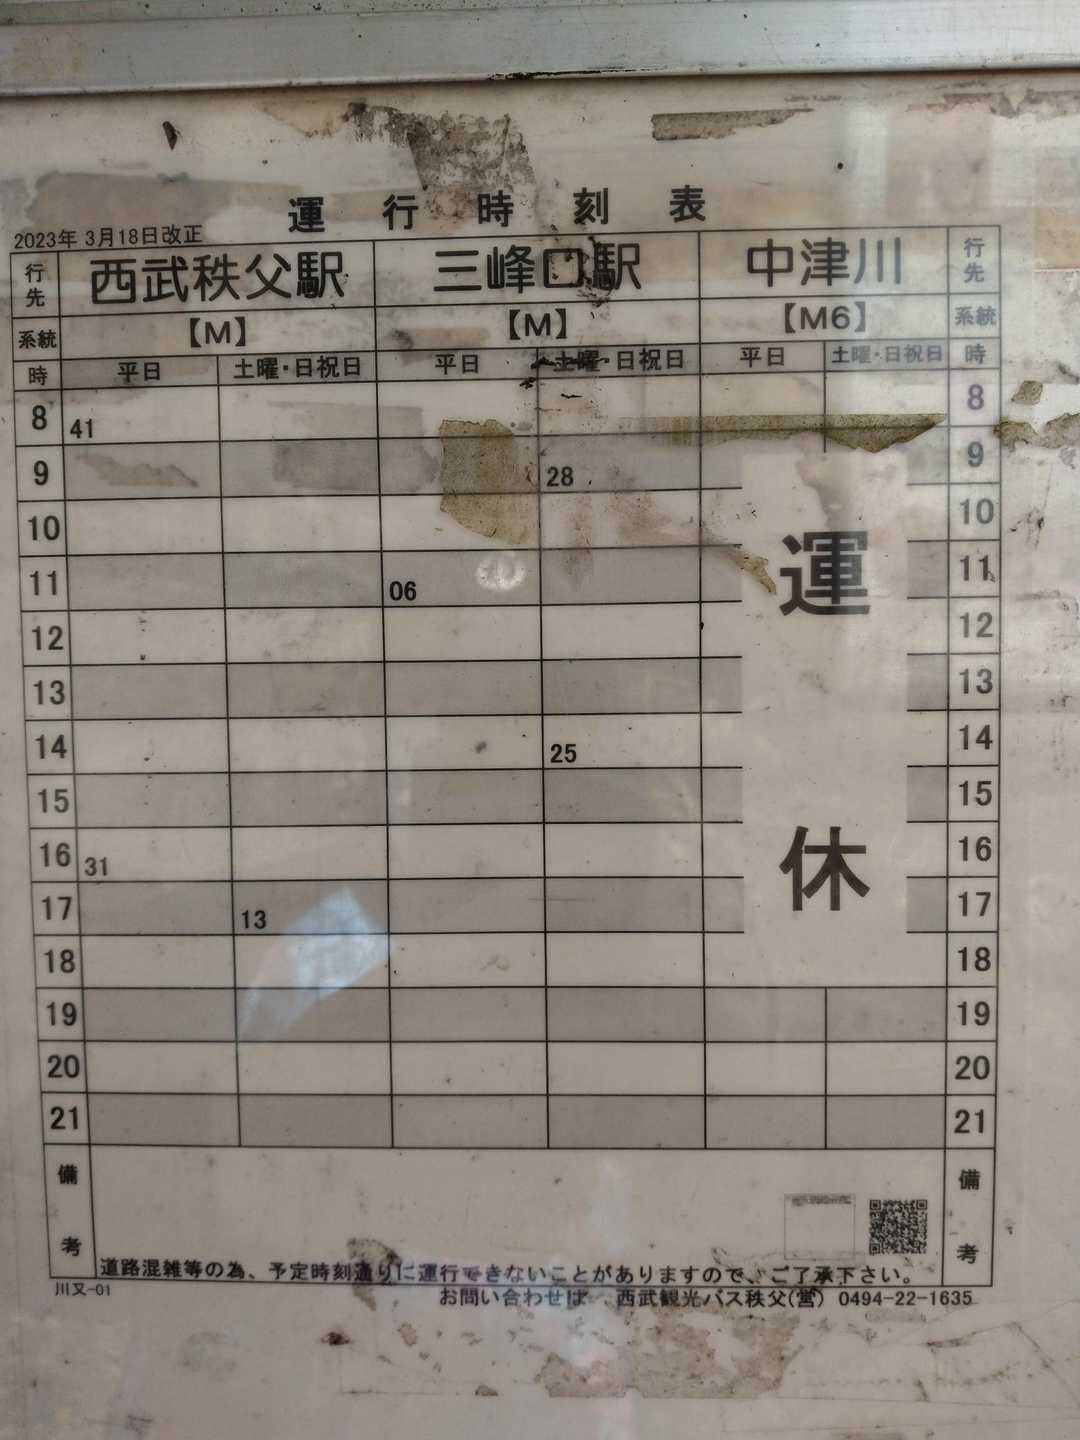 運行時刻表
2023年 3月18日改正
行先 西武秩父駅 三峰口駅 中津川 行先
系統 【M】 【M】 【M6】 系統
時 平日 土曜・日祝日 平日 土曜・日祝日 平日 土曜・日祝日 時
8 41 8
9 28 9
10 10
11 06 11
12 12
13 13
14 25 14
15 15
16 31 16
17 13 17
18 18
19 19
20 20
21 21
運休
備考 備考
道路混雑等の為、予定時刻通りに運行できないことがありますので、ご了承下さい。
川又-01
お問い合わせは 西武観光バス秩父(営) 0494-22-1635